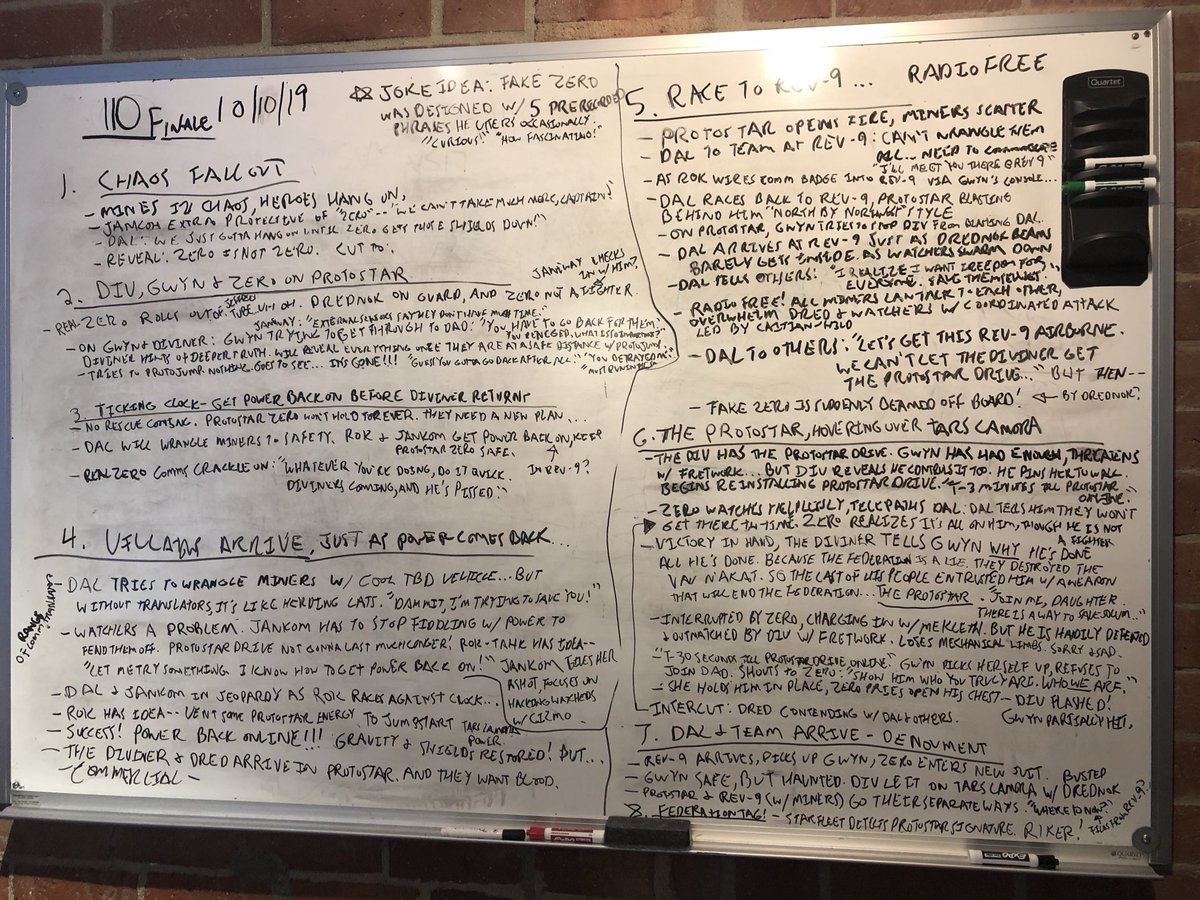 110 FINALE 10/10/19
☆ JOKE IDEA: FAKE ZERO
WAS DESIGNED W/ 5 PRERECORDED
PHRASES HE UTTERS OCCASIONALLY.
"CURIOUS!" "HOW FASCINATING!"
1. CHAOS FALLOUT
- MINES IN CHAOS, HEROES HANG ON,
- JANKOM EXTRA PROTECTIVE OF "ZERO" -- "WE CAN'T TAKE MUCH MORE, CAPTAIN!"
- DAL: WE JUST GOTTA HANG ON UNTIL ZERO GETS THOSE SHIELDS DOWN!")
- REVEAL: ZERO IS NOT ZERO. CUT TO:
2. DIV, GWYN & ZERO ON PROTOSTAR
JANEWAY CHECKS
IN W/ HIM?
- REAL ZERO ROLLS OUT OF JEFFRIES TUBE. UH-OH. DREDNOK ON GUARD, AND ZERO NOT A FIGHTER
JANEWAY: "EXTERNAL SENSORS SAY THEY DON'T HAVE MUCH TIME."
- ON GWYN & DIVINER: GWYN TRYING TO GET THROUGH TO DAD: "YOU HAVE TO GO BACK FOR THEM.
YOU RENEGED. WHAT IS SO IMPORTANT?"
DIVINER HINTS OF DEEPER TRUTH. WILL REVEAL EVERYTHING ONCE THEY ARE AT A SAFE DISTANCE W/ PROTOJUMP.
- TRIES TO PROTOJUMP. NOTHING. GOES TO SEE... IT'S GONE!!! "GUESS YOU GOTTA GO BACK AFTER ALL!" "YOU BETRAYED ME."
"MUST RUN IN THE FAM
3. TICKING CLOCK - GET POWER BACK ON BEFORE DIVINER RETURNS
- NO RESCUE COMING. PROTOSTAR ZERO WON'T HOLD FOREVER. THEY NEED A NEW PLAN...
- DAL WILL WRANGLE MINERS TO SAFETY. ROK & JANKOM GET POWER BACK ON, KEEP
PROTOSTAR ZERO SAFE.
IN REV-9?
- REAL ZERO COMMS CRACKLE ON: "WHATEVER YOU'RE DOING, DO IT QUICK.
DIVINERS COMING, AND HE'S PISSED!"
4. VILLAINS ARRIVE, JUST AS POWER COMES BACK...
RANGE
OF COMM? TRANSLATOR
- DAL TRIES TO WRANGLE MINERS W/ COOL TBD VEHICLE... BUT
WITHOUT TRANSLATORS, IT'S LIKE HERDING CATS. "DAMMIT, I'M TRYING TO SAVE YOU!"
- WATCHERS A PROBLEM. JANKOM HAS TO STOP FIDDLING W/ POWER TO
FEND THEM OFF. PROTOSTAR DRIVE NOT GONNA LAST MUCH LONGER! ROK-TAHK HAS IDEA --
"LET ME TRY SOMETHING. I KNOW HOW TO GET POWER BACK ON!" JANKOM GIVES HER
A SHOT, FOCUSES ON
HACKING WATCHERS
W/ GIZMO.
- DAL & JANKOM IN JEOPARDY AS ROK RACES AGAINST CLOCK...
- ROK HAS IDEA -- VENT SOME PROTOSTAR ENERGY TO JUMPSTART TARS LAMORA'S
POWER.
- SUCCESS! POWER BACK ONLINE!!! GRAVITY & SHIELDS RESTORED! BUT...
- THE DIVINER & DRED ARRIVE IN PROTOSTAR. AND THEY WANT BLOOD.
- COMMERCIAL -
5. RACE TO REV-9... RADIO FREE
- PROTOSTAR OPENS FIRE, MINERS SCATTER
- DAL TO TEAM AT REV-9: CAN'T WRANGLE THEM
ALL... NEED TO COMMUNICATE
"I'LL MEET YOU THERE @ REV 9"
- AS ROK WIRES COMM BADGE INTO REV-9 VIA GWYN'S CONSOLE...
- DAL RACES BACK TO REV-9, PROTOSTAR BLASTING
BEHIND HIM "NORTH BY NORTHWEST" STYLE
- ON PROTOSTAR, GWYN TRIES TO STOP DIV FROM BLASTING DAL.
- DAL ARRIVES AT REV-9 JUST AS DREDNOK BEAMS
BARELY GETS INSIDE. AS WATCHERS SWARM DOWN
- DAL TELLS OTHERS: "I REALIZE I WANT FREEDOM FOR
EVERYONE. SAVE THEMSELVES.
- RADIO FREE! ALL MINERS CAN TALK TO EACH OTHER,
OVERWHELM DRED & WATCHERS W/ COORDINATED ATTACK
LED BY CAITIAN CHILD
- DAL TO OTHERS: "LET'S GET THIS REV-9 AIRBORNE.
WE CAN'T LET THE DIVINER GET
THE PROTOSTAR DRIVE..." BUT THEN --
- FAKE ZERO IS SUDDENLY BEAMED OFF BOARD! ← BY DREDNOK?
6. THE PROTOSTAR, HOVERING OVER TARS LAMORA
- THE DIV HAS THE PROTOSTAR DRIVE. GWYN HAS HAD ENOUGH, THREATENS
W/ FRETWORK... BUT DIV REVEALS HE CONTROLS IT TOO. HE PINS HER TO WALL.
BEGINS REINSTALLING PROTOSTAR DRIVE. "T-3 MINUTES TILL PROTOSTAR
ONLINE."
- ZERO WATCHES HELPLESSLY, TELEPATHS DAL. DAL TELLS HIM THEY WON'T
GET THERE IN TIME. ZERO REALIZES IT'S ALL ON HIM, THOUGH HE IS NOT
A FIGHTER
- VICTORY IN HAND, THE DIVINER TELLS GWYN WHY HE'S DONE
ALL HE'S DONE. BECAUSE THE FEDERATION IS A LIE. THEY DESTROYED THE
VAU N'AKAT. SO THE LAST OF HIS PEOPLE ENTRUSTED HIM W/ A WEAPON
THAT WILL END THE FEDERATION... THE PROTOSTAR. JOIN ME, DAUGHTER.
THERE IS A WAY TO SAVE SOLUM..."
- INTERRUPTED BY ZERO, CHARGING IN W/ MEKLETH. BUT HE IS HANDILY DEFEATED
& OUTMATCHED BY DIV W/ FRETWORK. LOSES MECHANICAL LIMBS. SORRY & SAD.
- "T-30 SECONDS TILL PROTOSTAR DRIVE ONLINE." GWYN PICKS HERSELF UP, REFUSES TO
JOIN DAD. SHOUTS TO ZERO: "SHOW HIM WHO YOU TRULY ARE. WHO WE ARE."
- SHE HOLDS HIM IN PLACE, ZERO PRIES OPEN HIS CHEST - DIV FLASHED!
GWYN PARTIALLY HIT.
INTERCUT: DRED CONTENDING W/ DAL & OTHERS.
7. DAL & TEAM ARRIVE - DENOUMENT
- REV-9 ARRIVES, PICKS UP GWYN, ZERO ENTERS NEW SUIT.
- GWYN SAFE, BUT HAUNTED. DIV LEFT ON TARS LAMORA W/ BUSTED DREDNOK
- PROTOSTAR & REV-9 (W/ MINERS) GO THEIR SEPARATE WAYS. "WHERE TO NOW?"
FILES FROM REV-9?
8. FEDERATION TAG! - STARFLEET DETECTS PROTOSTAR SIGNATURE. RIKER!
Quartet
EXPO
QUARTET